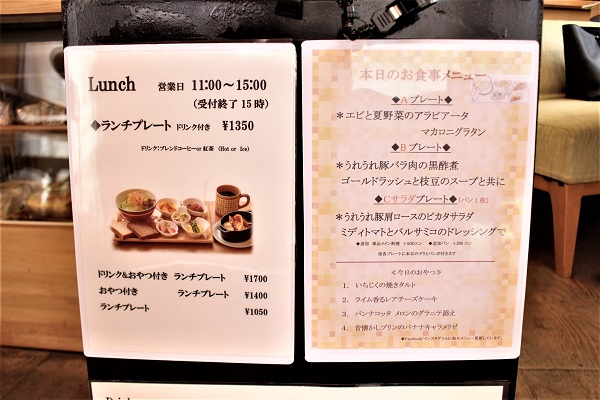 Lunch 営業日 11:00〜15:00
(受付終了 15時)
◆ランチプレート ドリンク付き ¥1350
ドリンク:ブレンドコーヒーor 紅茶 (Hot or Ice)
ドリンク&おやつ付き ランチプレート ¥1700
おやつ付き ランチプレート ¥1400
ランチプレート ¥1050
本日のお食事メニュー
◆Aプレート◆
*エビと夏野菜のアラビアータ
マカロニグラタン
◆Bプレート◆
*うれうれ豚バラ肉の黒酢煮
ゴールドラッシュと枝豆のスープと共に
◆Cサラダプレート◆(パン1枚)
*うれうれ豚肩ロースのピカタサラダ
ミディトマトとバルサミコのドレッシングで
◆追加 単品メイン料理 +500エン ◆追加パン +200エン
各プレートに本日のデリとパンが付きます
≪今日のおやつ≫
1. いちじくの焼きタルト
2. ライム香るレアチーズケーキ
3. パンナコッタ メロンのグラニテ添え
4. 昔懐かしプリンのバナナキャラメリゼ
◆Facebook/インスタグラムに毎日メニュー更新しています。